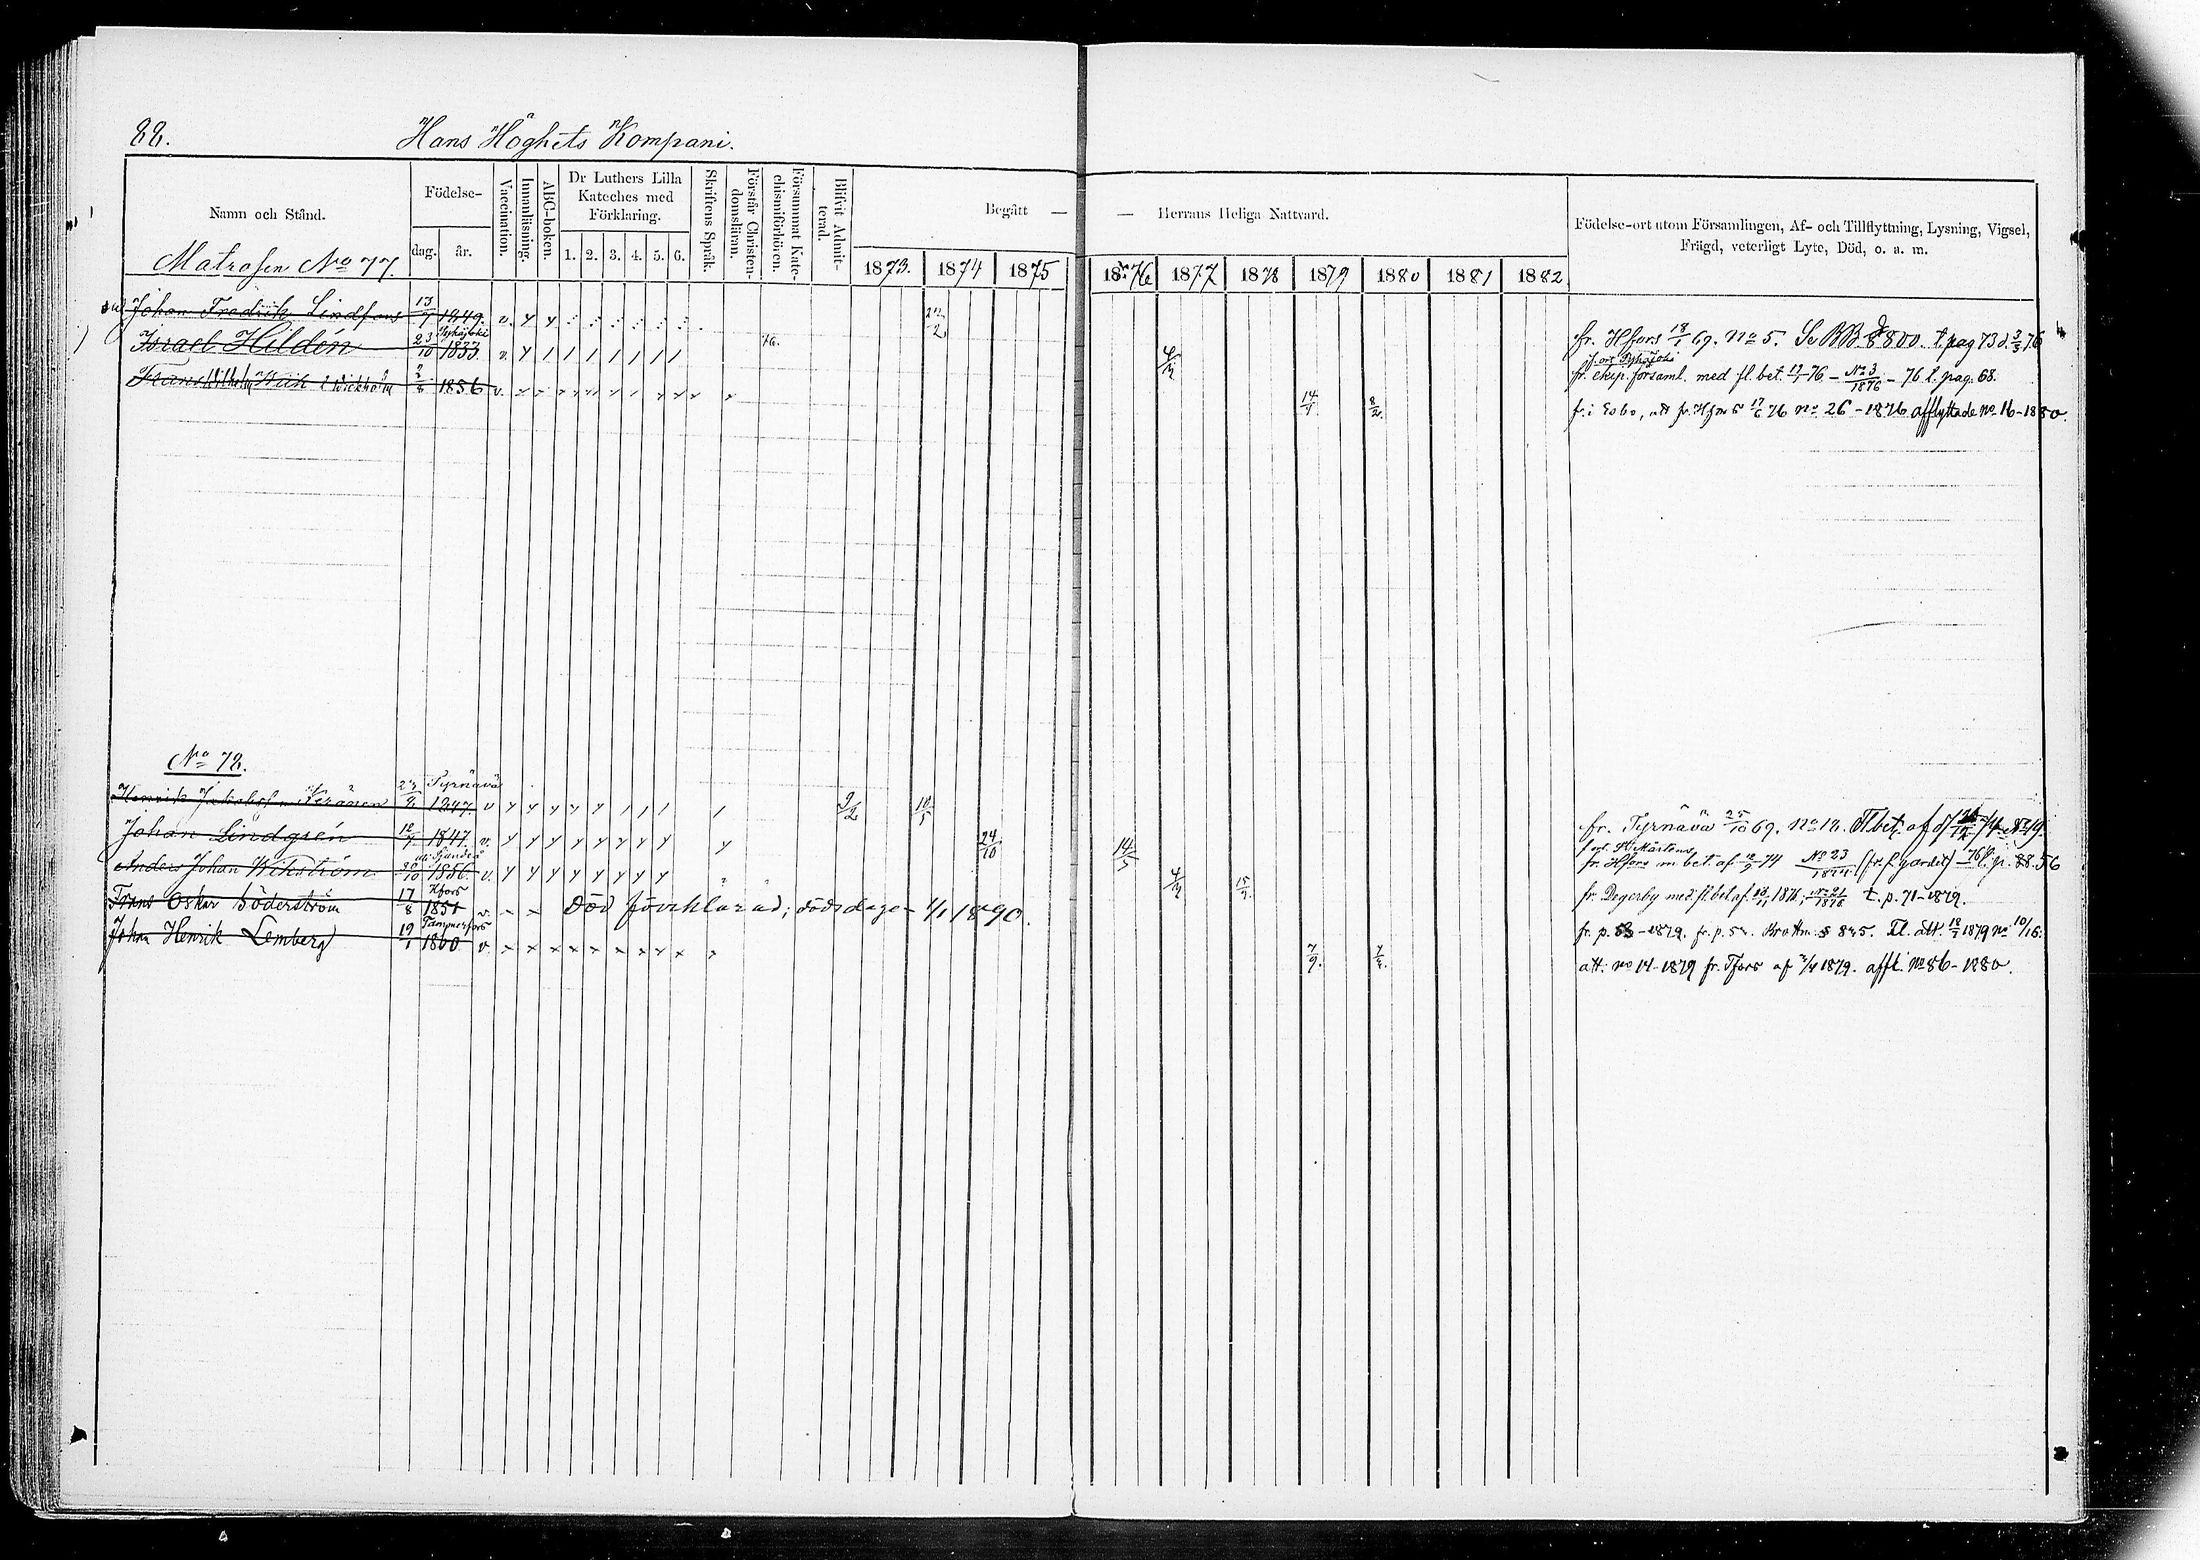 88.
Hans Höghets Kompani.
Namn och Stånd.
Födelse-
dag.
år.
Vaccination.
Innanläsning.
ABC-boken.
Dr Luthers Lilla
Kateches med
Förklaring.
1. 2. 3. 4. 5. 6.
Skriftens Språk.
Förstår Christen-
domsläran.
Försummat Kate-
chismiförhören.
Blifvit Admit-
terad.
Begått —
— Herrans Heliga Nattvard.
1873. 1874 1875 1876 1877 1878 1879 1880 1881 1882
Födelse-ort utom Församlingen, Af- och Tillflyttning, Lysning, Vigsel,
Frägd, veterligt Lyte, Död, o. a. m.
Matrosen No 77.
Johan Fredrik Lindfors 13/7 1849. v.
fr. Hfors 18/1 69. No 5. Se BB 800. t. pag 73 d. 3/3 76
Israel Hildén 23/10 1833. Pyhäjoki v. 76.
f. ort Pyhäjoki
fr. eksp. församl. med fl. bet. 19/1 76 – No 3/1876 – 76 t. pag. 68.
Frans Wilhelm Wiik l. Wickholm 1856 v. 14/9 8/2.
f. i Esbo, att fr. Hfors 17/6 76 no 26 - 1876 afflyttade no. 16-1880.
No 78.
Henrik Jakobss. Keränen Tyrnävä 1847. v 9/2 10/5
fr. Tyrnävä 25/10 69. No 12. Fl. bet. af
Johan Lindgren 12/7 1847. v. 24/10 14/5
fört. St. Mårtens
fr. Hfors m bet. af 74 No 23
Anders Johan Wikström Sjundeå 1856. v.
fr. Degerby med fl. bet. af 1876, No 21/1876 t. p. 71-1879.
Frans Oskar Söderström 17/8 Hfors 1851 v. Död förklarad; dödsdagen 1/1 1890.
fr. p. 53 - 1879. fr. p. 52. Brottm. § 825. Fl. att. 1879 no 10/16.
Johan Henrik Lemberg 19/1 Tammerfors 1860 v. 7/9.
att. no 14-1879 fr. Tfors af 1879. affl. No 86 - 1880.